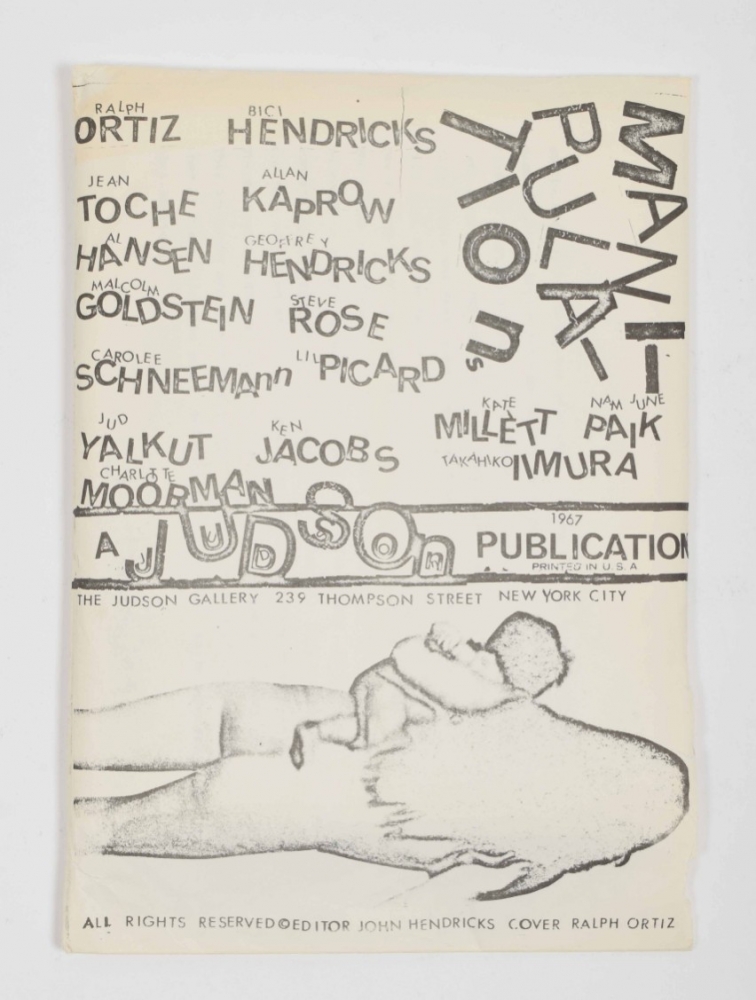 RALPH ORTIZ
BICI HENDRICKS
MANI-
PULA-
TIOns
JEAN TOCHE
ALLAN KAPROW
AL HANSEN
GEOFFREY HENDRICKS
MALCOLM GOLDSTEIN
STEVE ROSE
CAROLEE SCHNEEMAnn
LIL PICARD
KATE MILLETT
NAM JUNE PAIK
JUD YALKUT
KEN JACOBS
TAKAHIKO IIMURA
CHARLOTTE MOORMAN
A JUDSOn PUBLICATION
1967
PRINTED IN U.S.A
THE JUDSON GALLERY 239 THOMPSON STREET NEW YORK CITY
ALL RIGHTS RESERVED © EDITOR JOHN HENDRICKS COVER RALPH ORTIZ